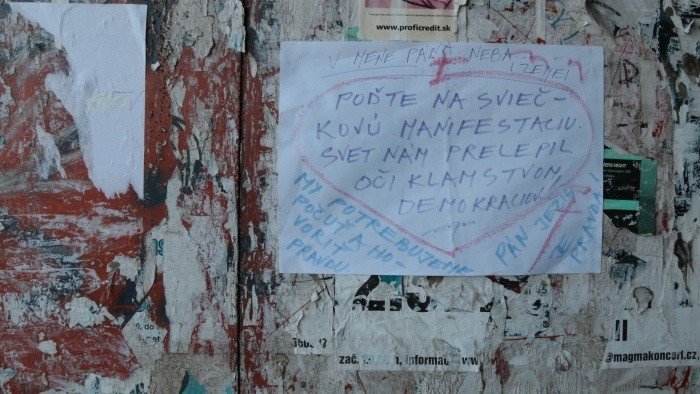 www.proficredit.sk
V MENE PANA NEBA
ZEME!
POĎTE NA SVIEČ-
KOVÚ MANIFESTACIU.
SVET NÁM PRELEPIL
OČI KLAMSTVOM,
DEMOKRACIOU!
MY POTREBUJEME
POČUŤ A HO-
VORIŤ
PRAVDU!
PAN JEŽIŠ
JE
PRAVDA!
zač.
informac
@magmakoncert.cz,